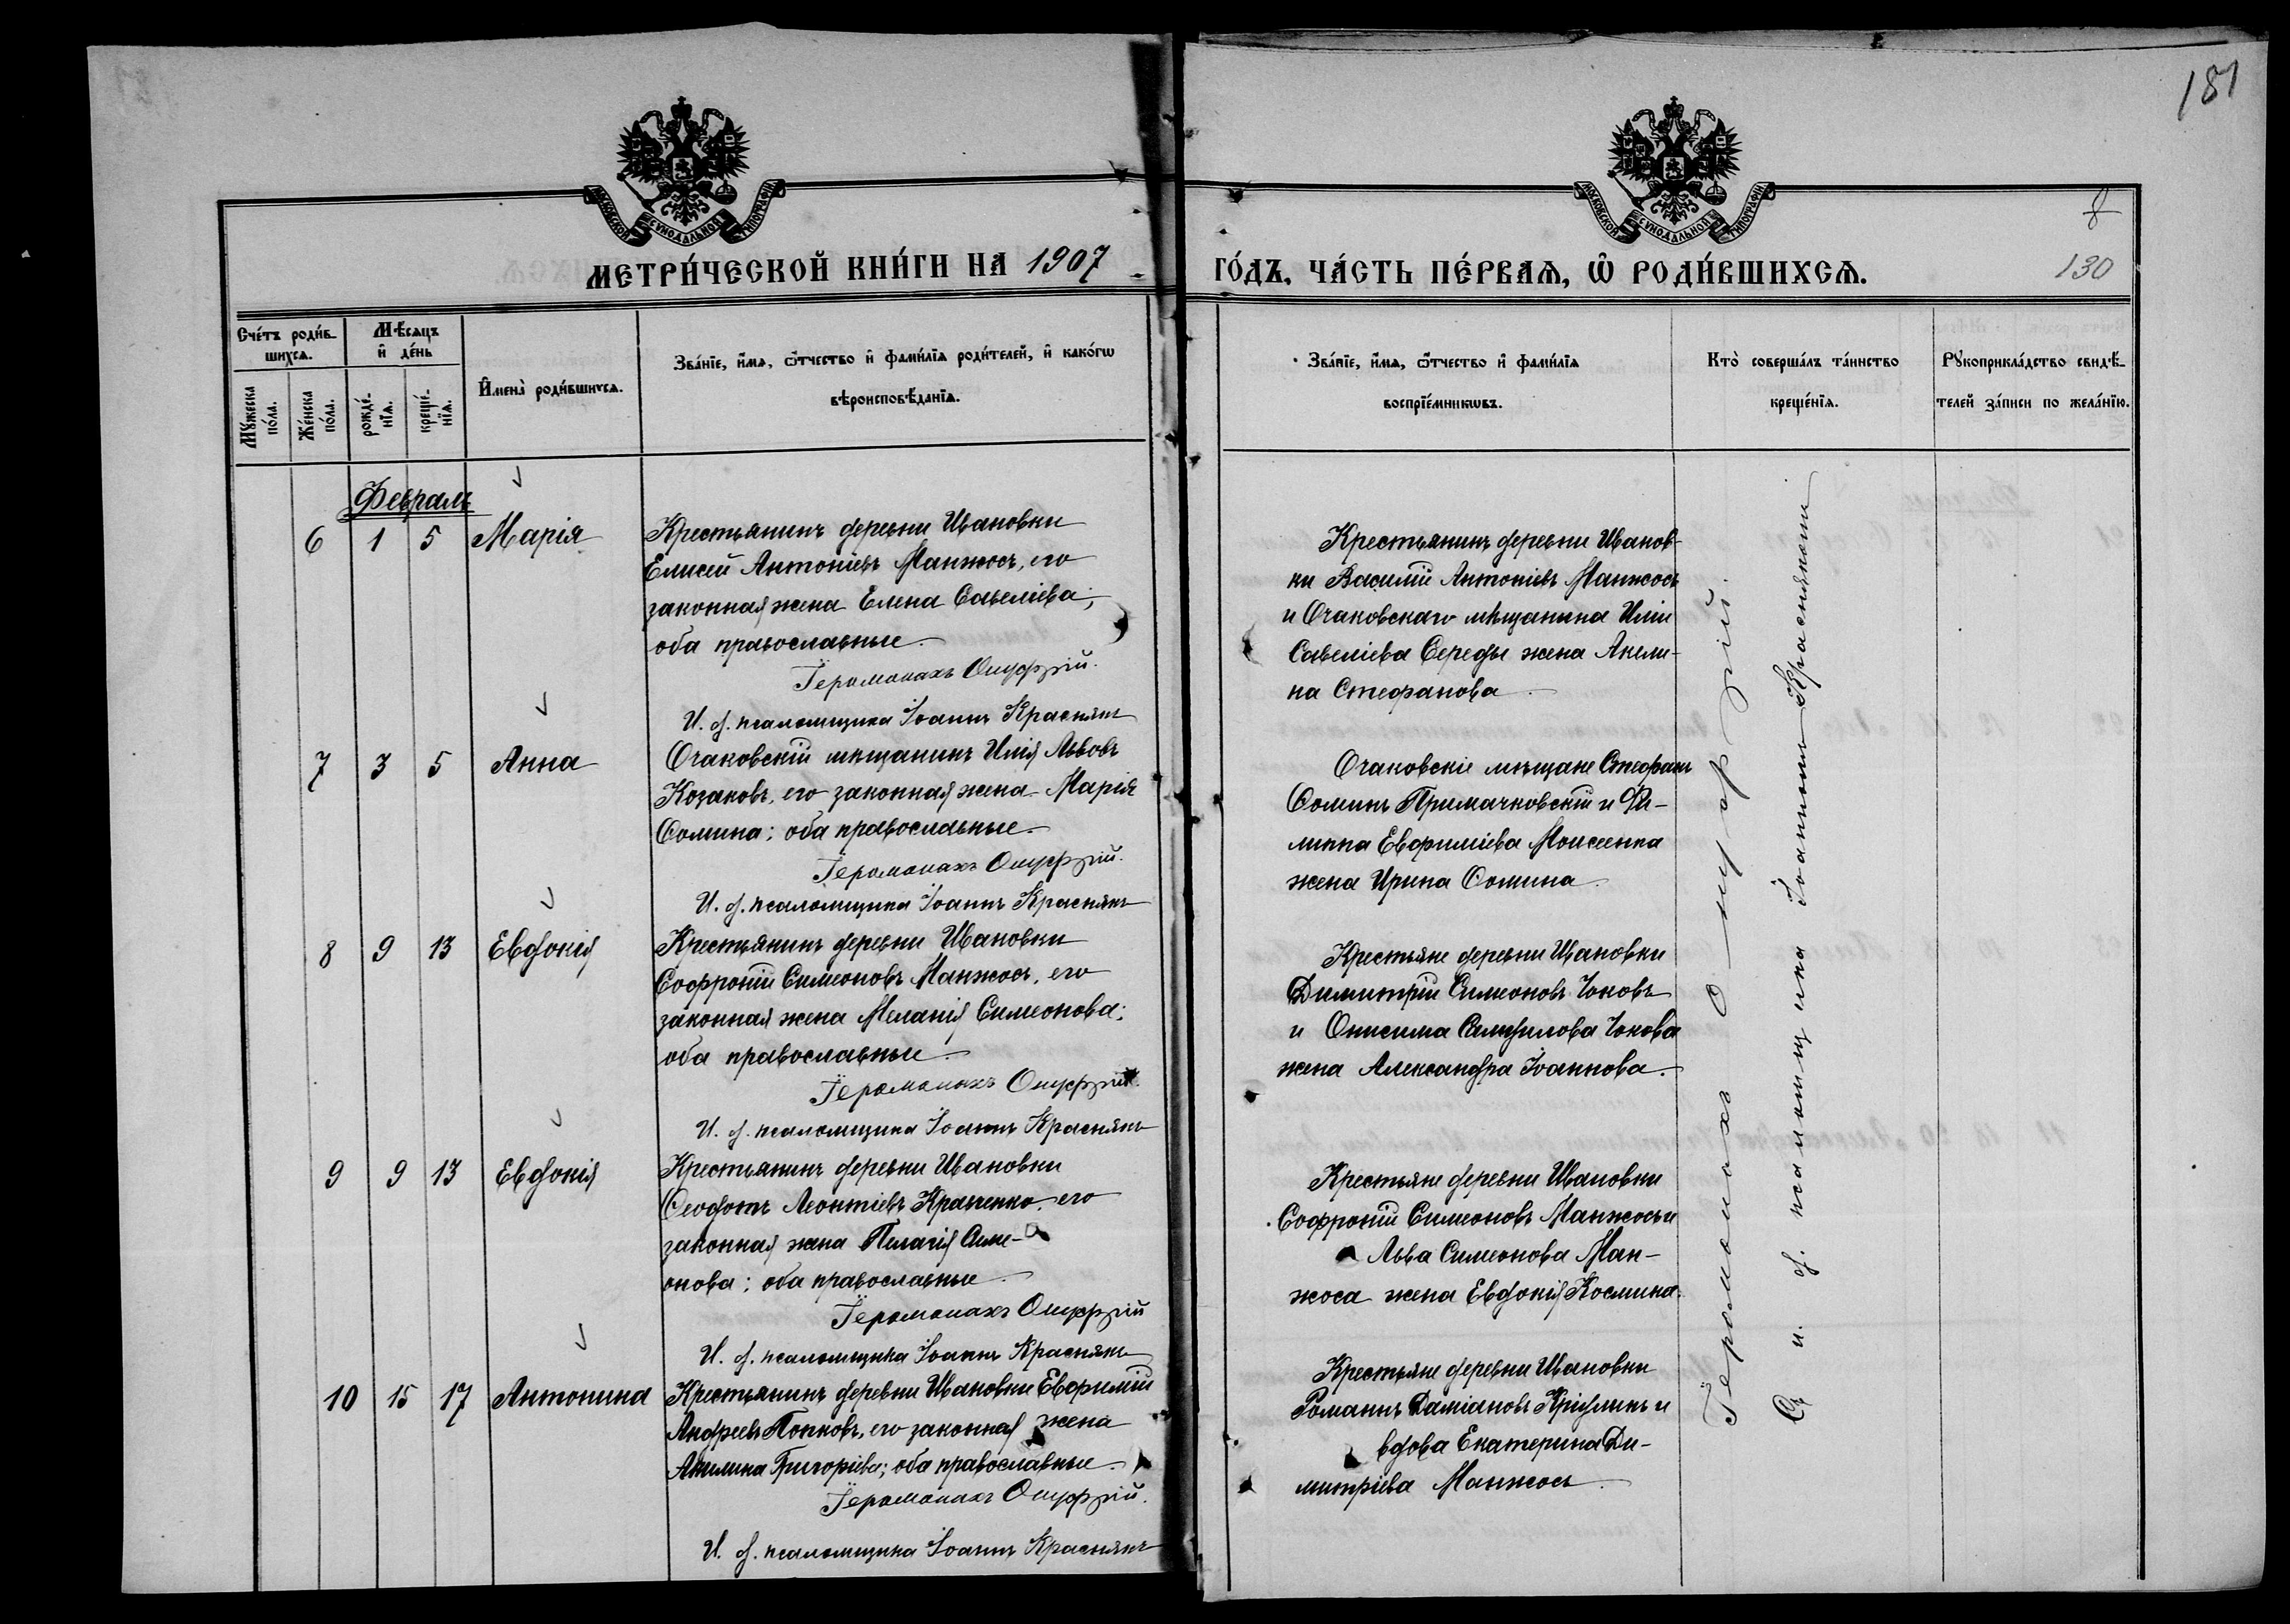 181
МОСКОВСКОЙ СѴНОДАЛЬНОЙ ТИПОГРАФІИ
МОСКОВСКОЙ СѴНОДАЛЬНОЙ ТИПОГРАФІИ
8
130
МЕТРИ́ЧЕСКОЙ КНИ́ГИ НА 1907
ГО́ДЪ, ЧА́СТЬ ПЕ́РВАЯ, Ѡ РОДИ́ВШИХСЯ.
Сче́тъ роди́в-
шихся.
Мѣ́сяцъ
и де́нь
Мꙋжеска
по́ла.
Же́нска
по́ла.
рожде́-
нїя.
креще́-
нїя.
И҆мена̀ роди́вшихся.
Зва́нїе, и҆́мя, ѻ҆́тчество и҆ фами́лїя роди́телей, и҆ како́гѡ
вѣроисповѣ́данїя.
Зва́нїе, и҆́мя, ѻ҆́тчество и҆ фами́лїя
воспрїе́мникѡвъ.
Кто̀ соверша́лъ та́инство
креще́нїя.
Рꙋкоприкла́дство свидѣ́-
телей за́писи по жела́нїю.
Февраль
6 1 5 Марія
Крестьянинъ деревни Ивановки
Елисей Антоніевъ Манжосъ, его
законная жена Елена Савеліева;
оба православные.
Іеромонахъ Онуфрій.
И. д. псаломщика Іоаннъ Краснякъ
Крестьянинъ деревни Иванов-
ки Василій Антоніевъ Манжосъ
и Очаковскаго мѣщанина Иліи
Савеліева Середы жена Акили-
на Стефанова.
7 3 5 Анна
Очаковскій мѣщанинъ Илія Львовъ
Козаковъ, его законная жена Марія
Ѳомина; оба православные.
Іеромонахъ Онуфрій.
И. д. псаломщика Іоаннъ Краснякъ
Очаковскіе мѣщане Стефанъ
Ѳоминъ Примачковскій и Фи-
липпа Евфиміева Моисеенка
жена Ирина Ѳомина.
8 9 13 Евдокія
Крестьянинъ деревни Ивановки
Софроній Симеоновъ Манжосъ, его
законная жена Меланія Симеонова;
оба православные.
Іеромонахъ Онуфрій.
И. д. псаломщика Іоаннъ Краснякъ
Крестьяне деревни Ивановки
Димитрій Симеоновъ Чоковъ
и Онисима Самуилова Чокова
жена Александра Іоаннова.
9 9 13 Евдокія
Крестьянинъ деревни Ивановки
Ѳеодотъ Леонтіевъ Кравченко, его
законная жена Пелагія Симе-
онова; оба православные.
Іеромонахъ Онуфрій
И. д. псаломщика Іоаннъ Краснякъ
Крестьяне деревни Ивановки
Софроній Симеоновъ Манжосъ и
Льва Симеонова Ман-
жоса жена Евдокія Космина.
10 15 17 Антонина
Крестьянинъ деревни Ивановки Евфимій
Андреевъ Попковъ, его законная жена
Акилина Григоріева; оба православные.
Іеромонахъ Онуфрій.
И. д. псаломщика Іоаннъ Краснякъ
Крестьяне деревни Ивановки
Романъ Даміановъ и
вдова Екатерина Ди-
митріева Манжосъ.
Іеромонахъ Онуфрій.
Съ и. д. псаломщика Іоанномъ Краснякомъ